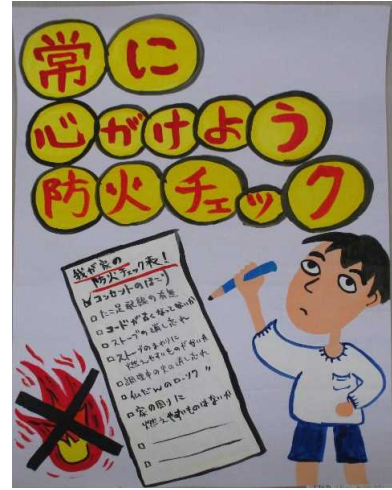 常に
心がけよう
防火チェック
我が家の
防火チェック表!
☑コンセントのほこり
□たこ足配線の有無
□コードが古くなってないか
□ストーブの消し忘れ
□ストーブのまわりに
燃えやすいものがないか
□調理中の火の消し忘れ
□仏だんのローソク 〃
□家の周りに
燃えやすいものはないか
□
□